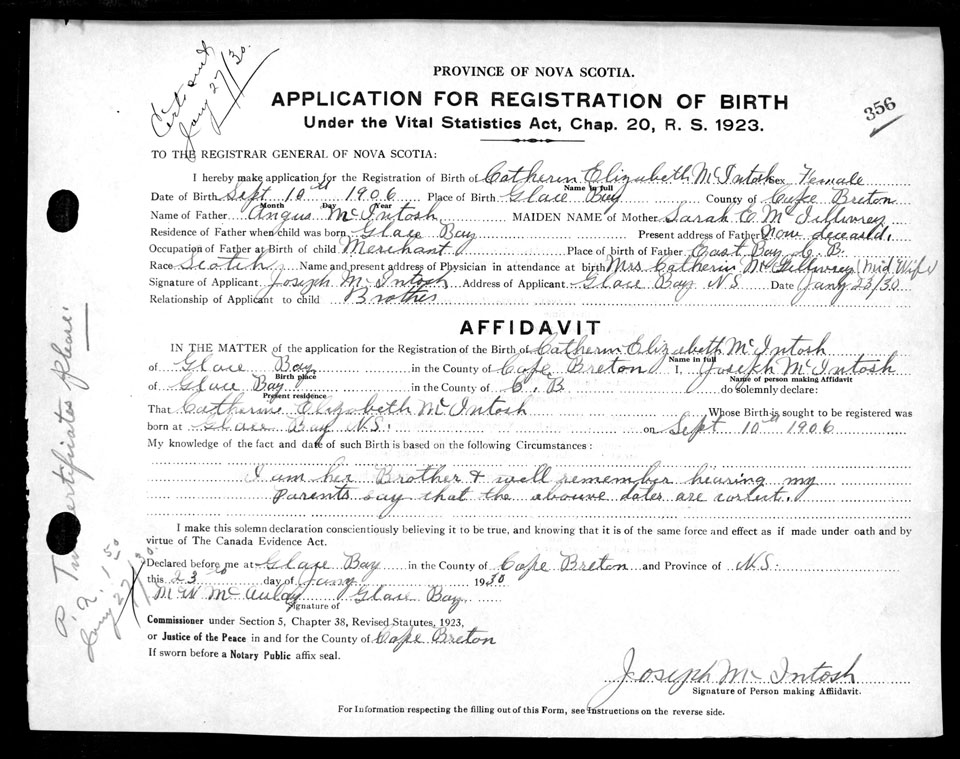 Certs sent
Jany 27/30.
PROVINCE OF NOVA SCOTIA.
APPLICATION FOR REGISTRATION OF BIRTH
Under the Vital Statistics Act, Chap. 20, R. S. 1923.
356
TO THE REGISTRAR GENERAL OF NOVA SCOTIA:
I hereby make application for the Registration of Birth of Catherin Elizabeth McIntosh Sex Female
Name in full
Date of Birth Sept 10th 1906 Place of Birth Glace Bay County of Cape Breton
Month Day Year
Name of Father Angus McIntosh MAIDEN NAME of Mother Sarah C. McGillivrey
Residence of Father when child was born Glace Bay Present address of Father Now deceasd.
Occupation of Father at Birth of child Merchant Place of birth of Father East Bay C. B.
Race Scotch Name and present address of Physician in attendance at birth Mrs. Catherin McGillivrey (Mid Wife)
Signature of Applicant Joseph McIntosh Address of Applicant Glace Bay N S Date Jany 23/30
Relationship of Applicant to child Brother
AFFIDAVIT
IN THE MATTER of the application for the Registration of the Birth of Catherin Elizabeth McIntosh
Name in full
of Glace Bay in the County of Cape Breton I, Joseph McIntosh
Birth place Name of person making Affidavit
of Glace Bay in the County of C. B do solemnly declare:
Present residence
That Catherine Elizabeth McIntosh Whose Birth is sought to be registered was
born at Glace Bay N.S. on Sept 10th 1906
My knowledge of the fact and date of such Birth is based on the following Circumstances:
I am her Brother & well remember hearing my
Parents say that the abouve dates are corect.
I make this solemn declaration conscientiously believing it to be true, and knowing that it is of the same force and effect as if made under oath and by
virtue of The Canada Evidence Act.
Declared before me at Glace Bay in the County of Cape Breton and Province of N.S.
this 23rd day of Jany 1930
M N McAulay Glace Bay
Signature of
Commissioner under Section 5, Chapter 38, Revised Statutes, 1923,
or Justice of the Peace in and for the County of Cape Breton
If sworn before a Notary Public affix seal.
Joseph McIntosh
Signature of Person making Affidavit.
For Information respecting the filling out of this Form, see Instructions on the reverse side.
Two certificates please:
P. N. 1.50
Jany 27/30.